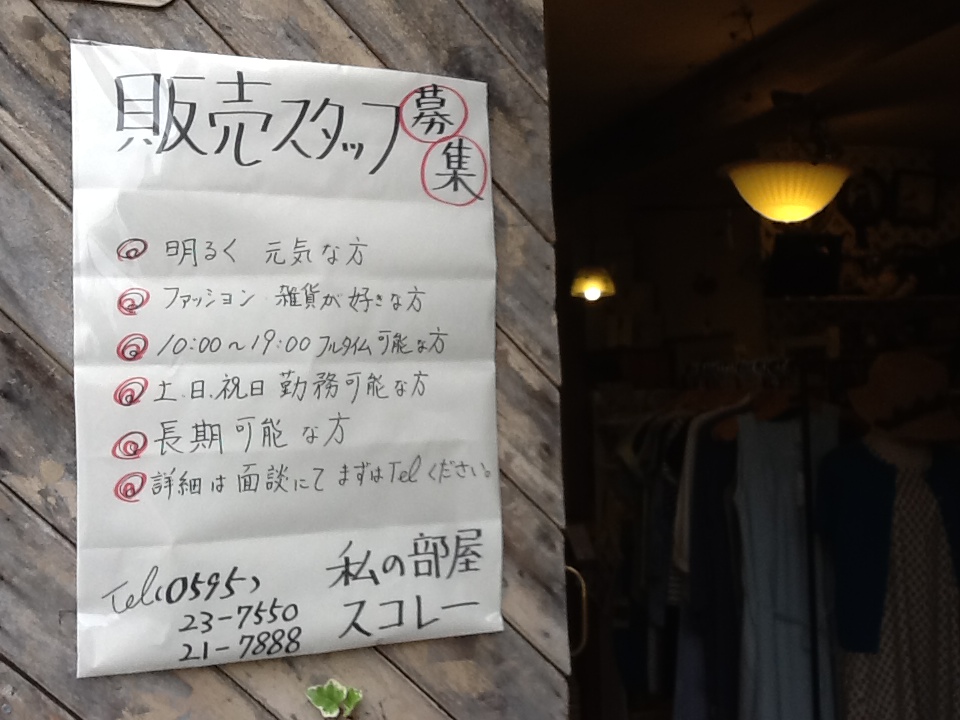 販売スタッフ募集
明るく 元気な方
ファッション 雑貨が好きな方
10:00～19:00 フルタイム可能な方
土.日.祝日 勤務可能な方
長期可能な方
詳細は面談にて まずはTelください。
私の部屋
スコレー
Tel(0595)
23-7550
21-7888